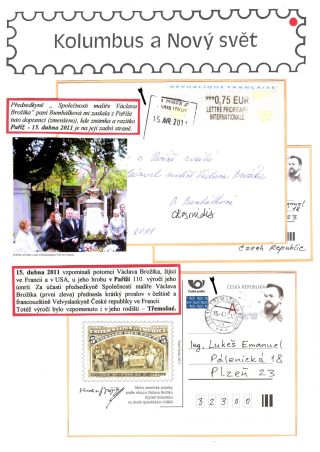 Kolumbus a Nový svět
Předsedkyně „ Společnosti malíře Václava
Brožíka" paní Bumbálková mi zaslala z Paříže
tuto dopisnici (zmenšeno), kde známka a razítko
Paříž - 15. dubna 2011 je na její zadní straně.
REPUBLIQUE FRANCAISE
€00,75 EUR
LETTRE PRIORITAIRE
INTERNATIONALE
15 AVR 2011
z Paříže
malíře Václava Brožíka
Bumbálková
2011
Czech Republic
15. dubna 2011 vzpomínali potomci Václava Brožíka, žijící
ve Francii a v USA, u jeho hrobu v Paříži 110. výročí jeho
úmrtí. Za účasti předsedkyně Společnosti malíře Václava
Brožíka (první zleva) přednesla krátký proslov v češtině a
francouzštině Velvyslankyně České republiky ve Francii.
Totéž výročí bylo vzpomenuto i v jeho rodišti – Třemošné.
ČESKÁ REPUBLIKA
A
Ing. Lukeš Emanuel
Pálenická 18
Plzeň 23
32300
Motiv americké známky
podle obrazu Václava Brožíka
Kryštof Kolumbus
na dvoře španělském